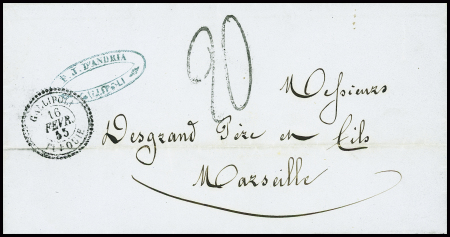 F. J. D'ANDRIA
GALLIPOLI
20
GALLIPOLI
16
FEVR.
55
TURQUIE
Messieurs
Desgrand Père et fils
Marseille